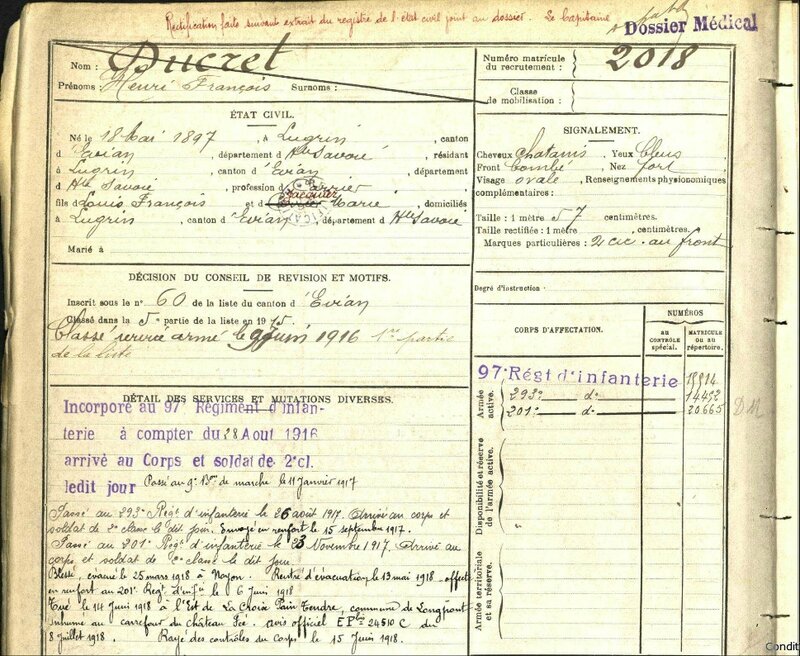 Rectification faite suivant extrait du registre de l'état civil joint au dossier. Le Capitaine
Dossier Médical
Nom : Ducret
Prénoms : Henri François Surnoms :
Numéro matricule du recrutement : 2018
Classe de mobilisation :
ÉTAT CIVIL.
Né le 18 Mai 1897, à Lugrin, canton
d'Evian, département d Hte Savoie, résidant
à Lugrin, canton d'Evian, département
d Hte Savoie, profession de carrier
fils de Louis François et d Jacquier Marie, domiciliés
à Lugrin, canton d'Evian, département d Hte Savoie
Marié à
SIGNALEMENT.
Cheveux chatains Yeux bleus
Front bombé Nez fort
Visage ovale, Renseignements physionomiques
complémentaires :
Taille : 1 mètre 57 centimètres.
Taille rectifiée : 1 mètre centimètres.
Marques particulières : 2 cic. au front
DÉCISION DU CONSEIL DE REVISION ET MOTIFS.
Inscrit sous le n° 60 de la liste du canton d'Evian
Classé dans la 5e partie de la liste en 1915
Classé service armé le 9 juin 1916 1re partie
de la liste
Degré d'instruction :
CORPS D'AFFECTATION.
NUMÉROS
AU CONTRÔLE spécial.
MATRICULE OU AU répertoire.
Armée active.
97e Régt d'infanterie
293e d° 14452
201e d° 20665
Disponibilité et réserve de l'armée active.
Armée territoriale et sa réserve.
DÉTAIL DES SERVICES ET MUTATIONS DIVERSES.
Incorporé au 97e Régiment d'infan-
terie à compter du 28 Aout 1916
arrivé au Corps et soldat de 2e cl.
ledit jour Passé au 9e Bon de marche le 11 Janvier 1917
Passé au 293e Régt d'infanterie le 26 août 1917. Arrivé au corps et
soldat de 2e classe le dit jour. Envoyé en renfort le 15 septembre 1917.
Passé au 201e Régt d'infanterie le 23 Novembre 1917. Arrivé au
corps et soldat de 2e classe le dit jour
Blessé, évacué le 25 mars 1918 à Noyon. Rentré d'évacuation le 13 mai 1918
en renfort au 201e Régt d'infie le 6 Juin 1918
Tué le 14 Juin 1918 à l'Est de La Croix Pain Tendre, commune de Longpont
Inhumé au carrefour du château Fée. avis officiel 24510 C du
8 Juillet 1918. Rayé des contrôles du Corps le 15 Juin 1918.
Condit